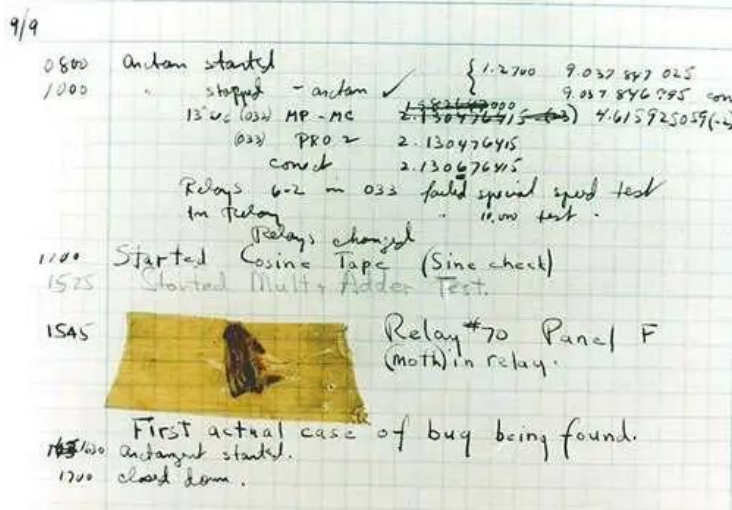 9/9
0800 antan started { 1.2700 9.037 847 025
1000 " stopped - antan ✓ 9.037 846 995
13" uc (032) MP - MC 2.130476415 4.615925059(-2)
(033) PRO 2 2.130476415
conect 2.130676415
Relays 6-2 in 033 failed special speed test
In Relay " 10.000 test .
Relays changed
1100 Started Cosine Tape (Sine check)
1525 Started Mult + Adder Test.
1545 Relay #70 Panel F
(moth) in relay.
First actual case of bug being found.
1630 antangent started.
1700 closed down.